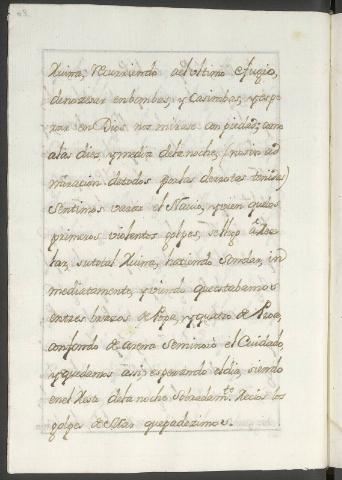 Ruina, Recurriendo al ultimo efugio,
de no zesar en bombas, y Casimbas, y espe
rar en Dios nos mirase con piedad; como
a las diez y media de la noche, (con
miracion de todos por las derrotas tenidas)
Sentimos varar el Navio, y bien que los
primeros violentos golpes, se llego a
su total Ruina, haciendo Sondar, in
mediatamente, y viendo que estabamos
entres brazos de Popa, y quatro de Proa,
con fondo de arena Seminoro el Cuidado,
y quedamos asi esperando el dia, siendo
en el Resto de la noche Sobradam.te Recios los
golpes de Mar que padezimos.